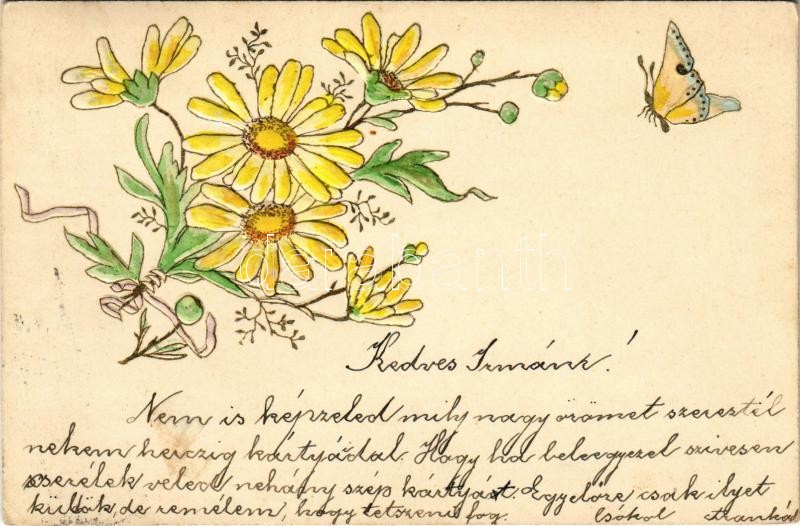 Kedves Irmánk!
Nem is képzeled mily nagy örömet szereztél
nekem herczig kártyáddal. Hogy ha beleegyezel szivesen
cserélek veled nehány szép kártyát. Egyelőre csak ilyet
küldök, de remélem, hogy tetszeni fog. Csókol
darabanth